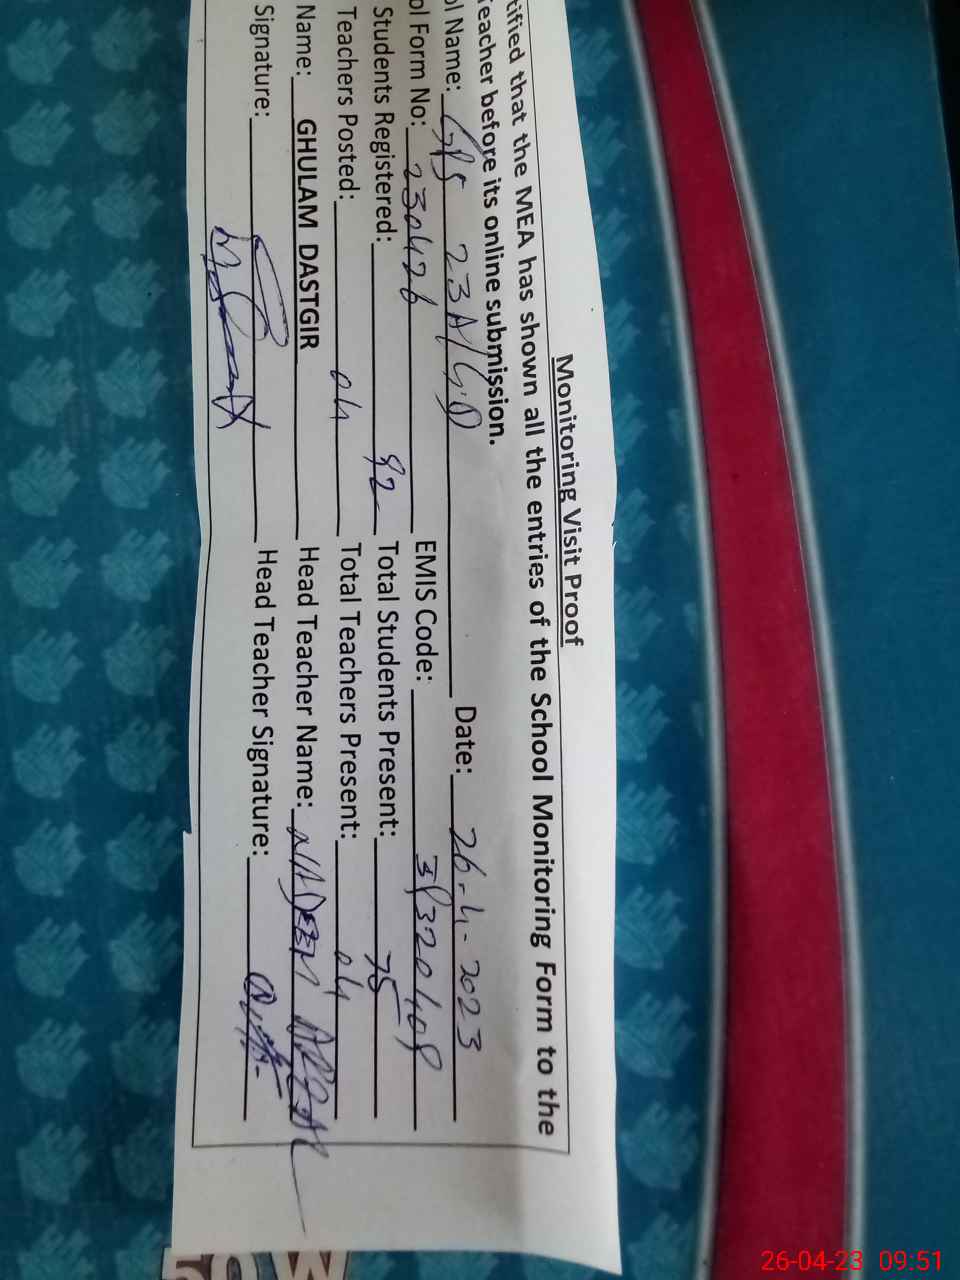 Monitoring Visit Proof
tified that the MEA has shown all the entries of the School Monitoring Form to the
eacher before its online submission.
ol Name: GPS 23A/G.D Date: 26-4-2023
ol Form No: 230426 EMIS Code:
Students Registered: 92 Total Students Present: 75
Teachers Posted: 04 Total Teachers Present: 04
Name: GHULAM DASTGIR Head Teacher Name: NADEEM
Signature: Head Teacher Signature:
26-04-23 09:51